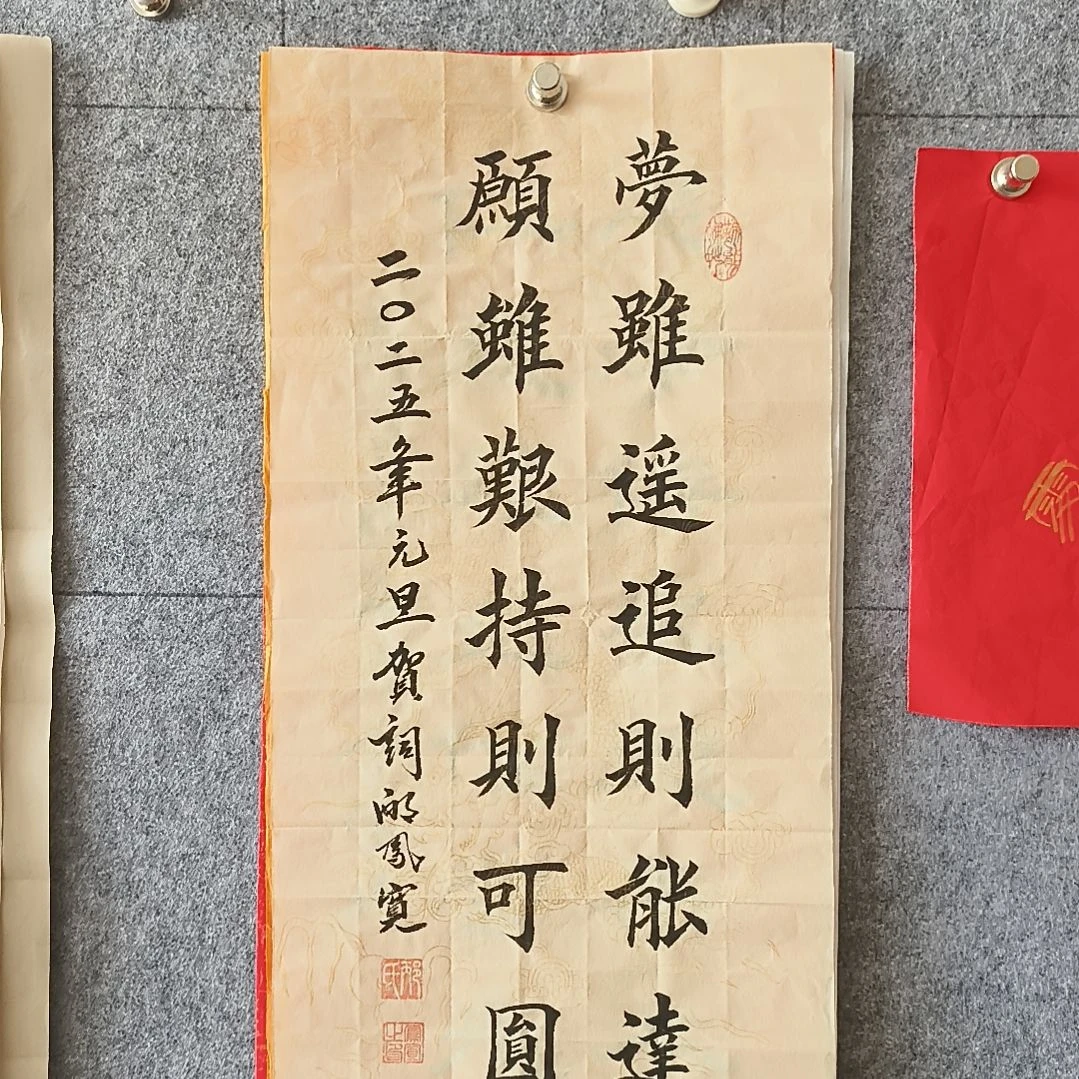 夢雖遥追則能達
願雖艱持則可圓
二〇二五年元旦賀詞邴鳳寛